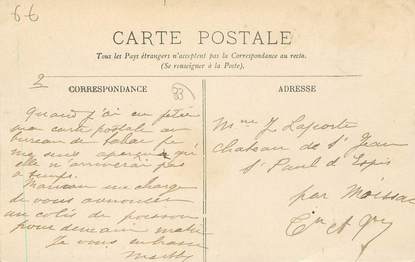 6€
CARTE POSTALE
Tous les Pays étrangers n'acceptent pas la Correspondance au recto.
(Se renseigner à la Poste).
2
33
CORRESPONDANCE
ADRESSE
Quand j'ai eu jeté
ma carte postale au
bureau de tabac je
me suis aperçue qu'
elle n'arriverai pas
à temps.
Maman me charge
de vous annoncer
un colis de poisson
pour demain matin
Je vous embrasse
Marthe
Mme J. Lacoste
chateau de St Jean
St Paul d'Espis
par Moissac
Tn et Gne